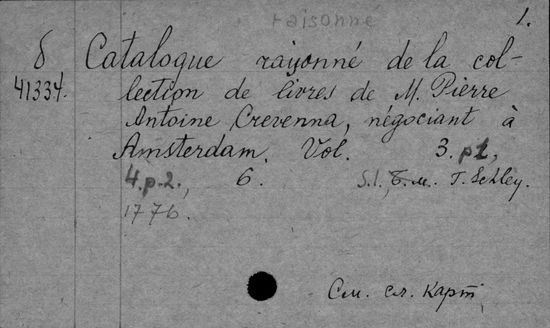 raisonné 1.
δ Catalogue rayonné de la col-
41334. lection de livres de M. Pierre
Antoine Crevenna, négociant à
Amsterdam. Vol. 3. p 1,
4. p. 2., 6. S. l., б. и. T. Schley.
1776.
См. сл. карт